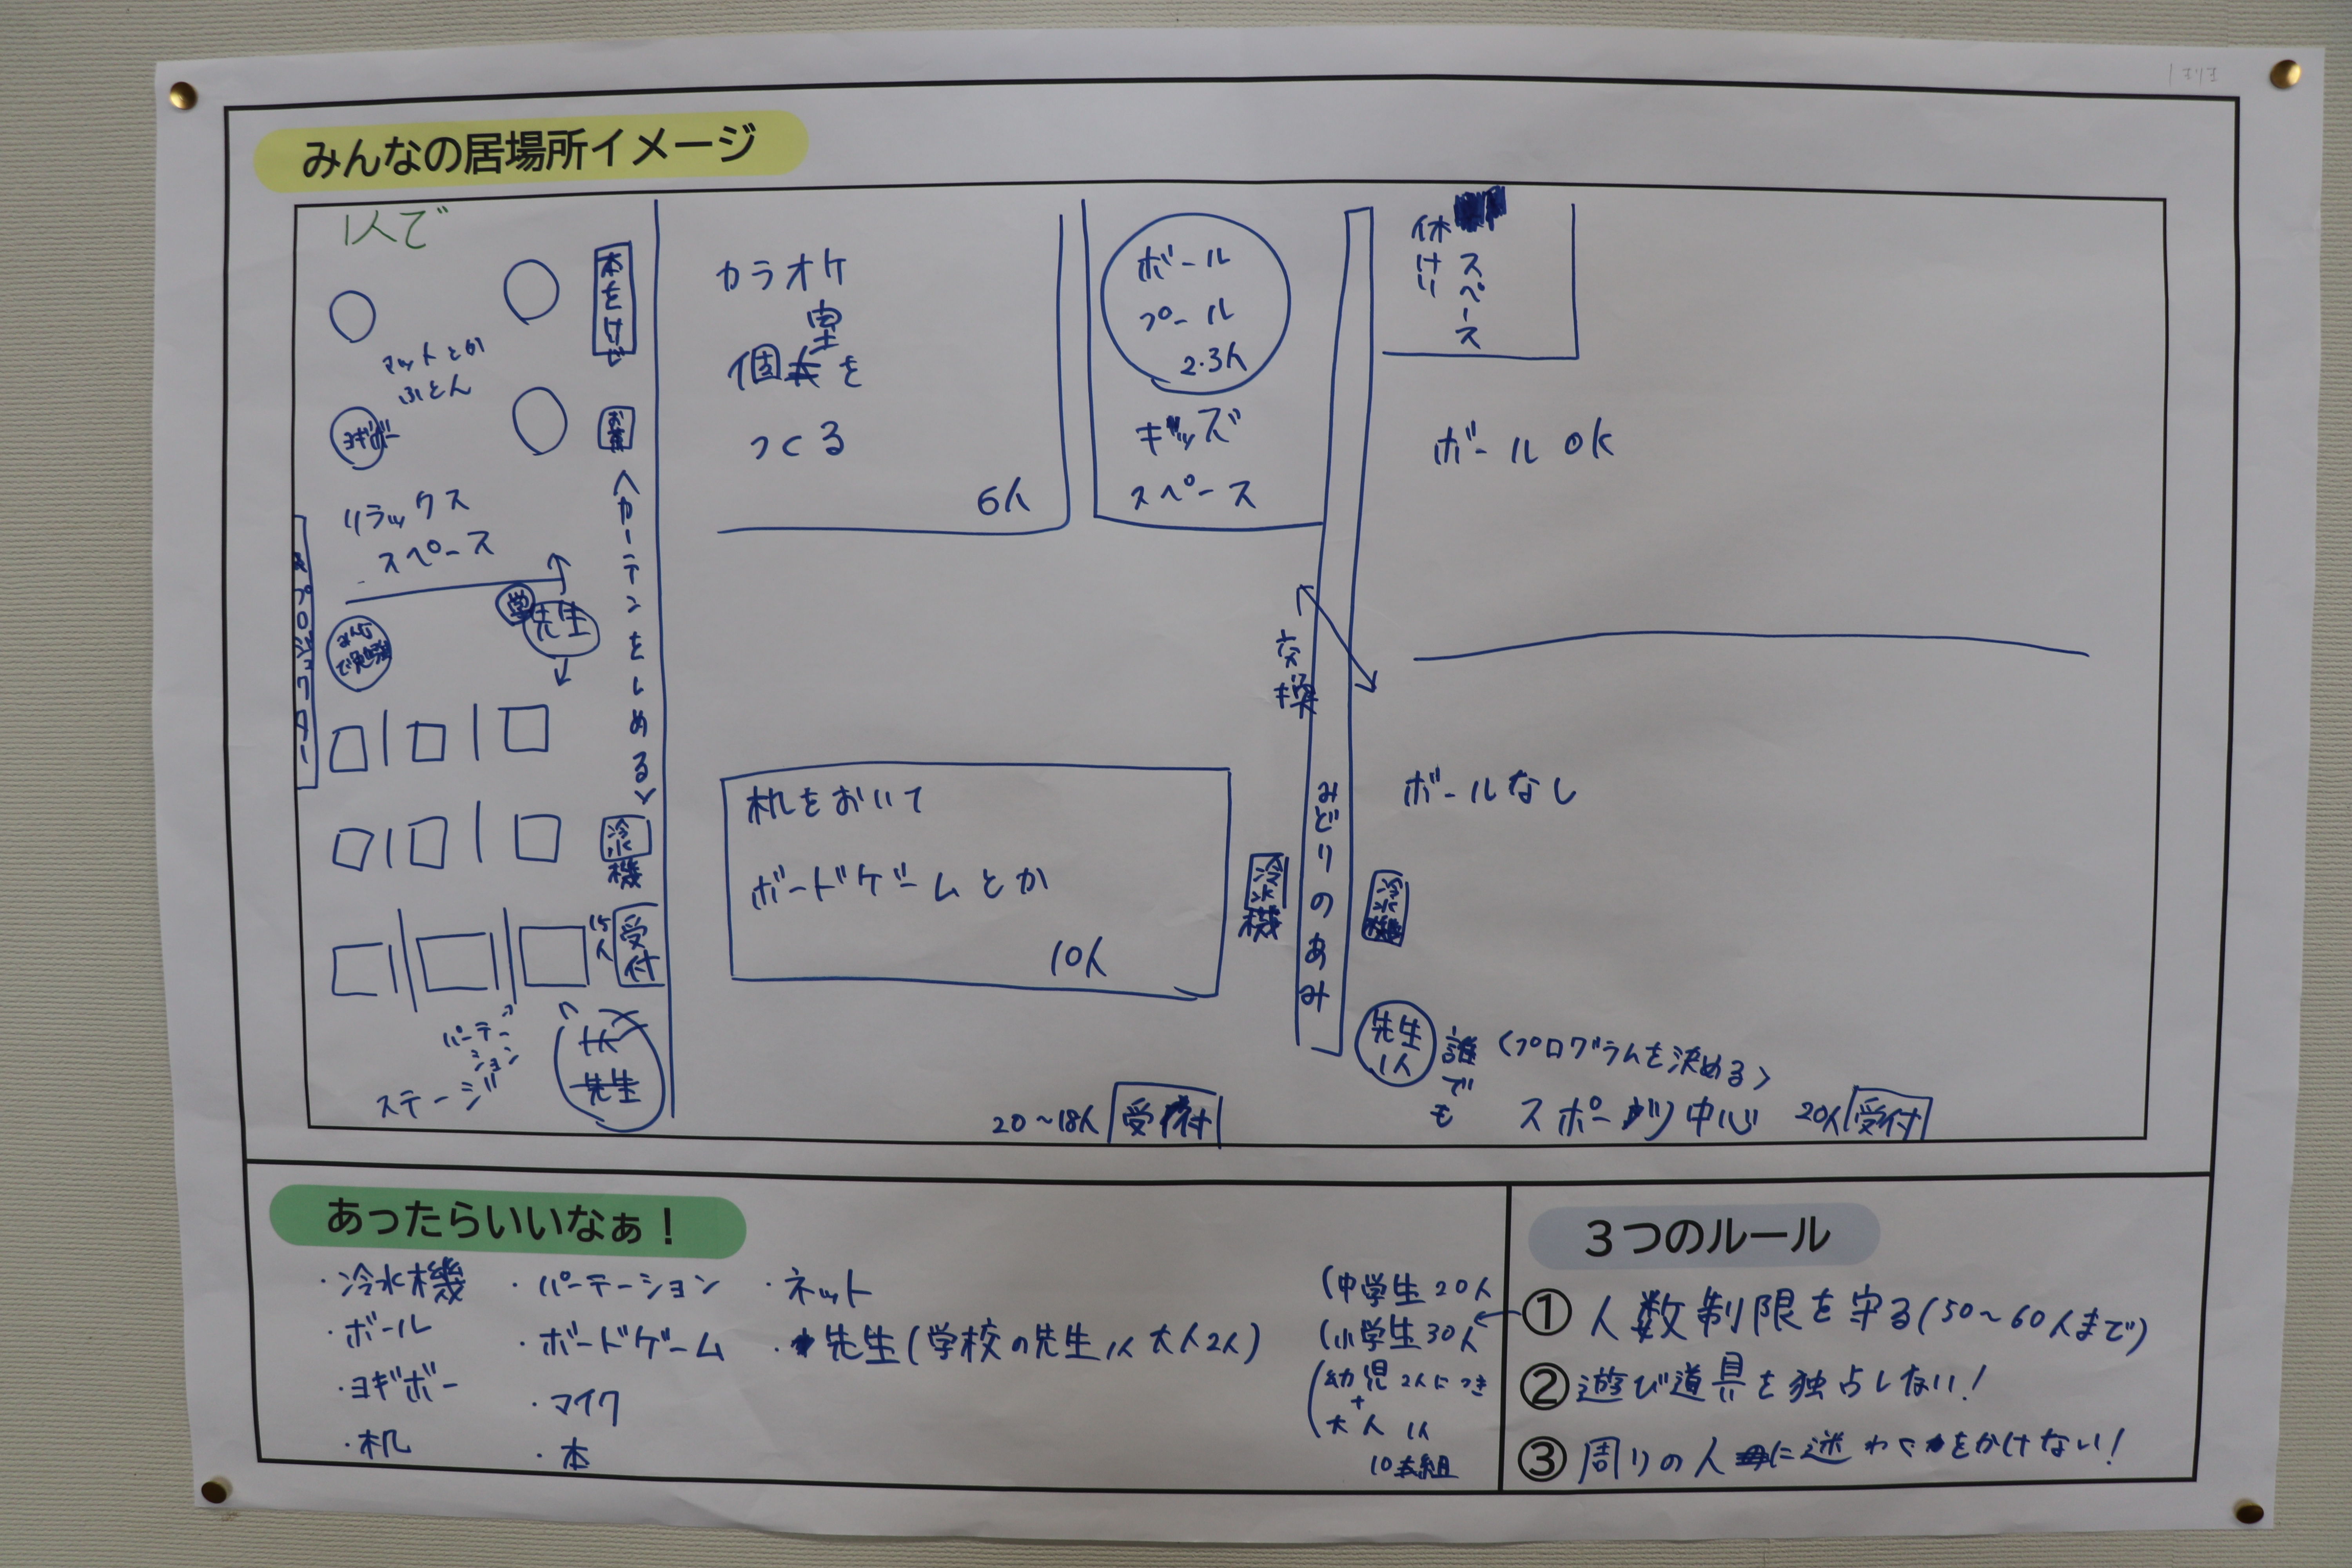 みんなの居場所イメージ
1人で
本をけど
マットとか
ふとん
ヨギボー
お茶
リラックス
スペース
プロジェクター
学
先生
みんな
で勉強
<カーテンをしめる>
冷水機
15人
受付
パーテーション
ステージ
先生
カラオケ
個室を
つくる
6人
ボール
プール
2・3人
キッズ
スペース
机をおいて
ボードゲームとか
10人
冷水機
20~18人 受付
交換
みどりのあみ
休けい
スペース
ボール OK
ボールなし
冷水機
先生
1人
誰でも
<プログラムを決める>
スポーツ中心 20人 受付
あったらいいなぁ!
・冷水機
・ボール
・ヨギボー
・机
・パーテーション
・ボードゲーム
・マイク
・本
・ネット
・先生(学校の先生1人 大人2人)
(中学生20人
(小学生30人
(幼児2人につき
+
大人 1人
10組
3つのルール
① 人数制限を守る(50~60人まで)
② 遊び道具を独占しない!
③ 周りの人に迷わくをかけない!